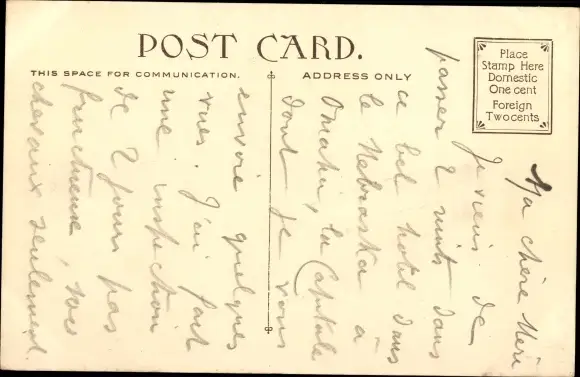 POST CARD.
THIS SPACE FOR COMMUNICATION.
ADDRESS ONLY
Place
Stamp Here
Domestic
One cent
Foreign
Two cents
Ma chère Méri
Je viens de
passer 2 nuits dans
ce bel hotel dans
le Nebraska à
Omaha, la Capitale
dont je vous
envoie quelques
vues. J'ai fait
une inspection
de 2 jours pas
fructueuse,
chevaux seulement.